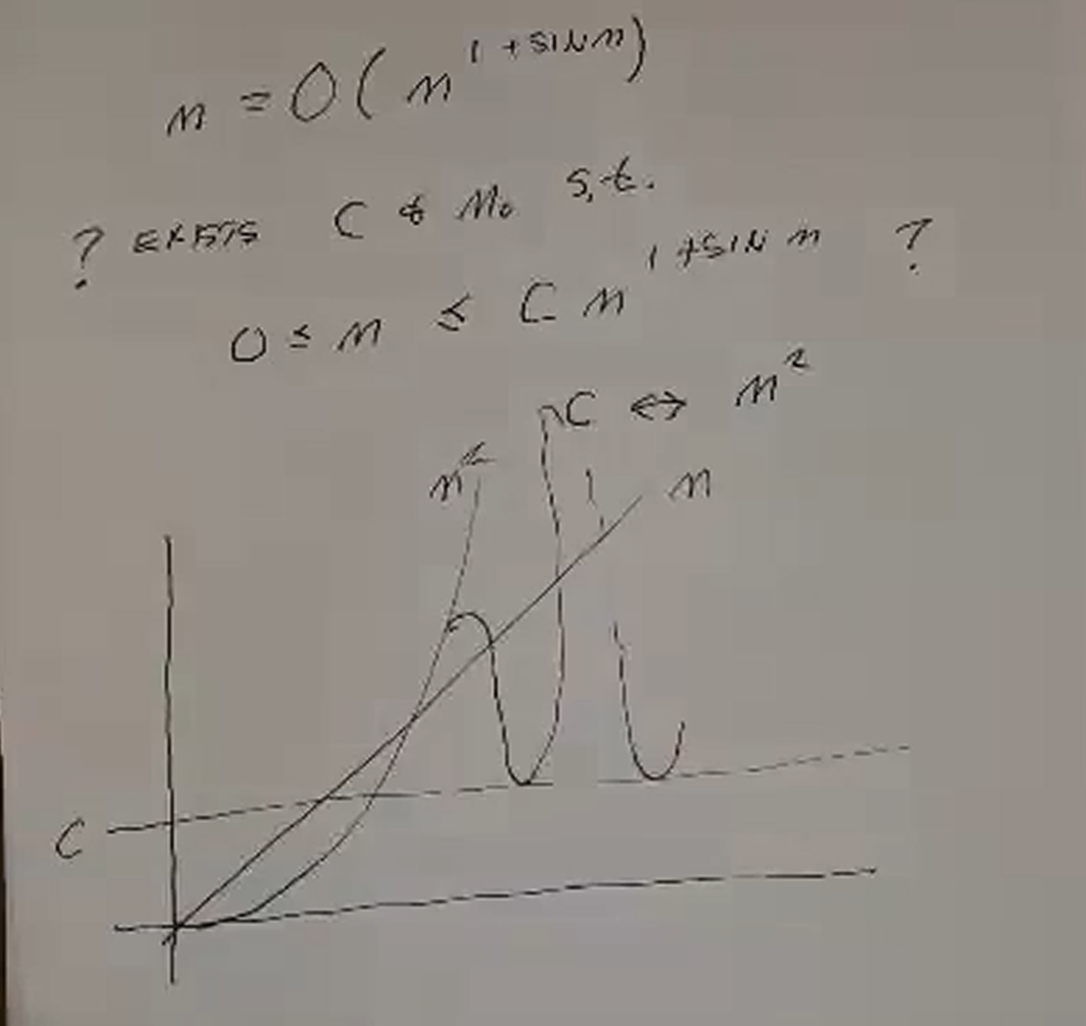 n = O(n^{1+SIN n})
? EXISTS C & n₀ s.t.
0 ≤ n ≤ C n^{1+SIN n} ?
C ↔ n²
n²
n
C